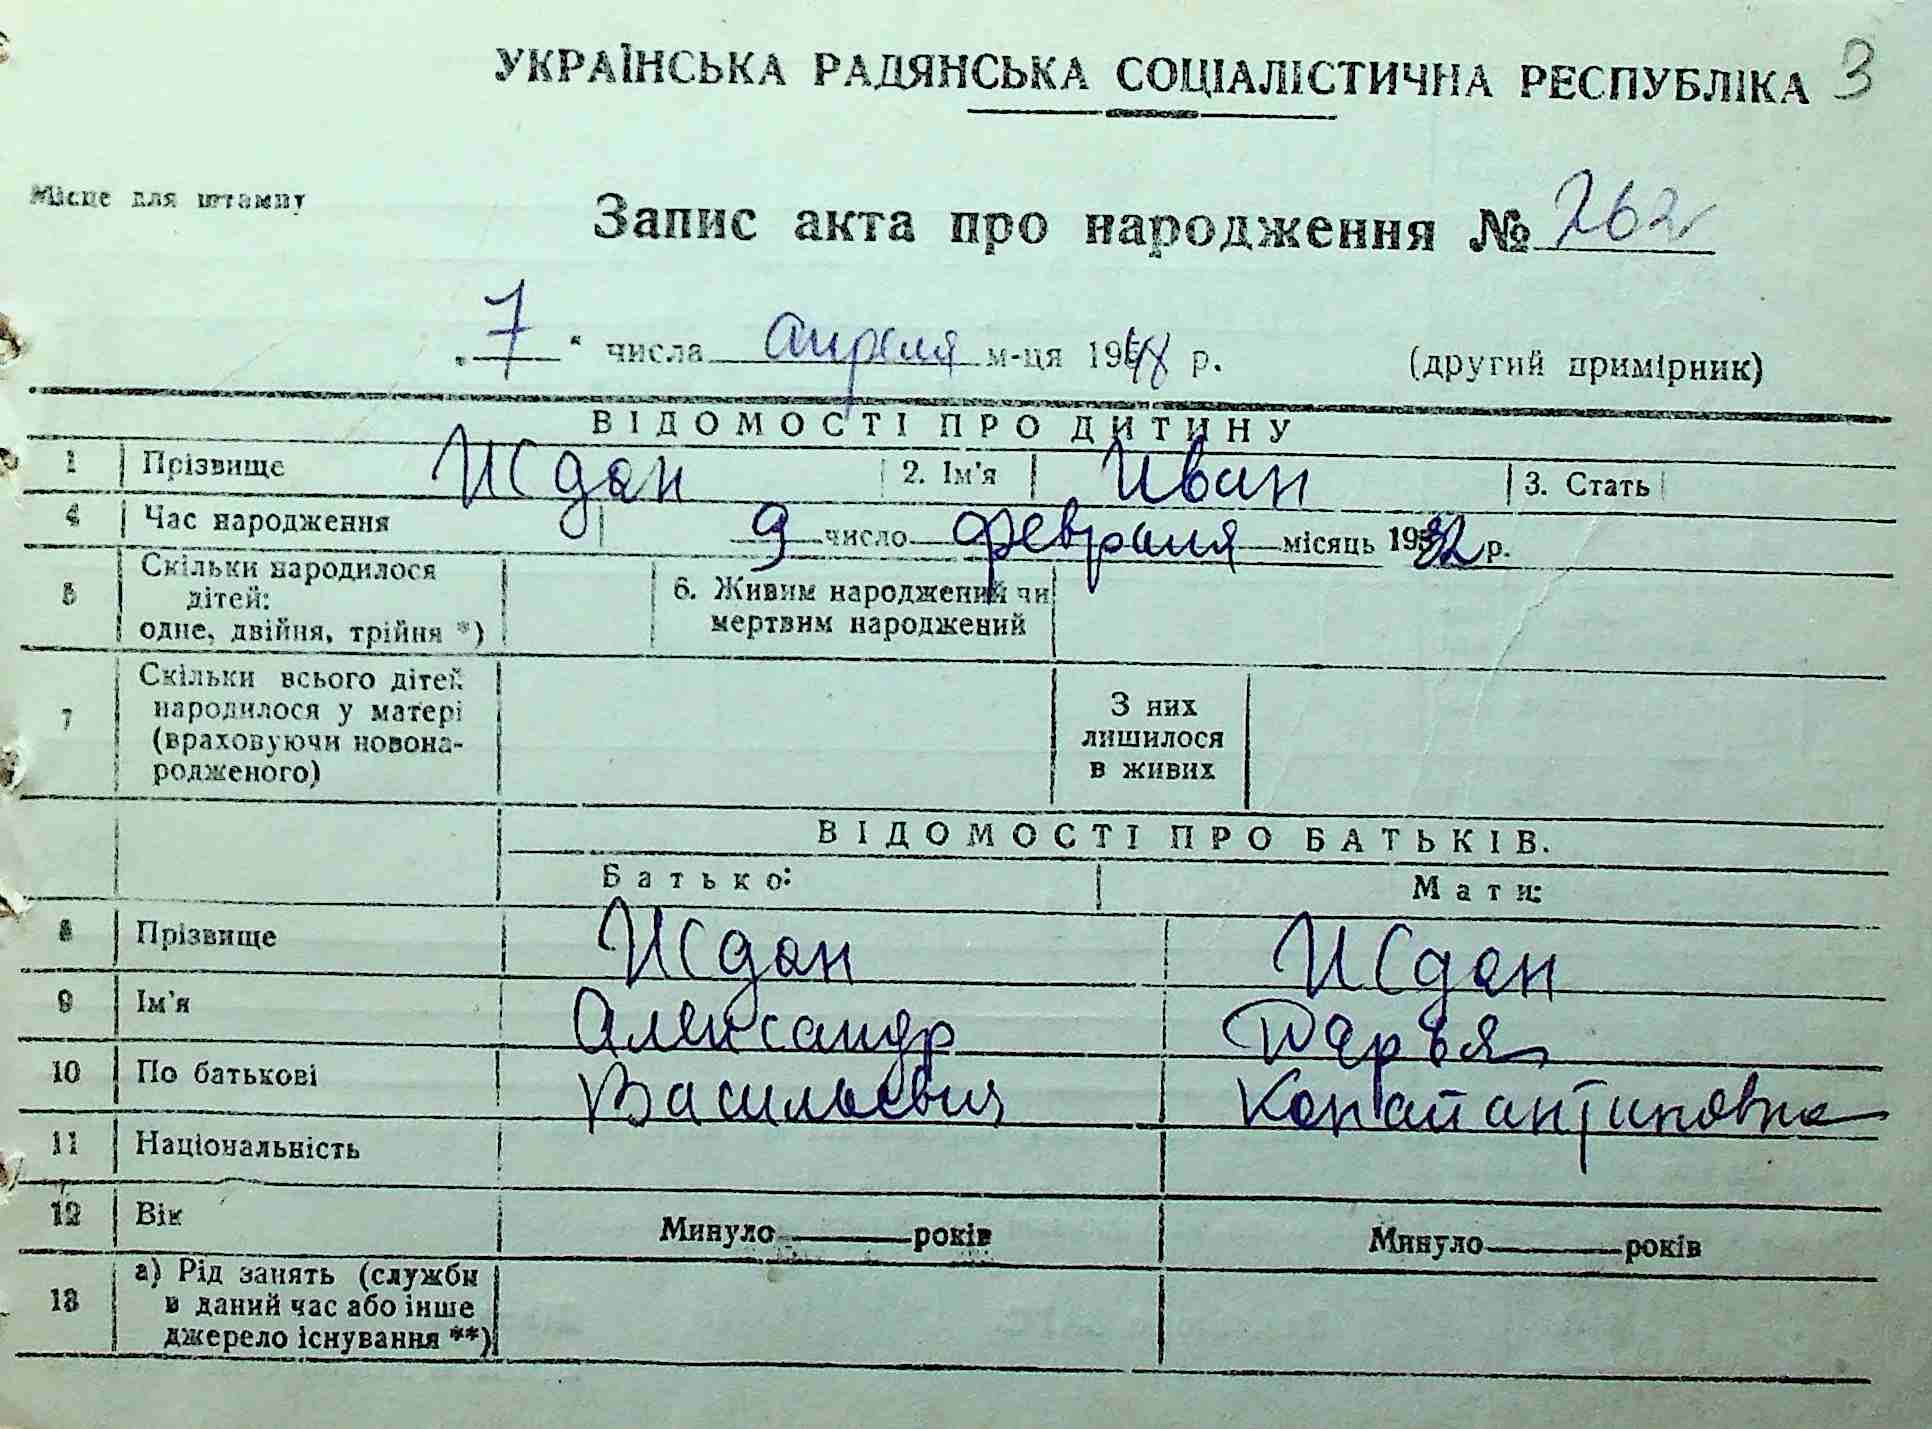 УКРАЇНСЬКА РАДЯНСЬКА СОЦІАЛІСТИЧНА РЕСПУБЛІКА 3
Місце для штампу
Запис акта про народження № 262
„ 7 “ числа апреля м-ця 1948 р. (другий примірник)
ВІДОМОСТІ ПРО ДИТИНУ
1 Прізвище Исдан 2. Ім'я Иван 3. Стать
4 Час народження 9 число февраля місяць 1932 р.
5 Скільки народилося
дітей:
одне, двійня, трійня *)
6. Живим народжений чи
мертвим народжений
7 Скільки всього дітей
народилося у матері
(враховуючи новона-
родженого)
З них
лишилося
в живих
ВІДОМОСТІ ПРО БАТЬКІВ.
Батько: Мати:
8 Прізвище Исдан Исдан
9 Ім'я Александр Дарья
10 По батькові Васильевич Константиновна
11 Національність
12 Вік Минуло років Минуло років
13 а) Рід занять (служби
в даний час або інше
джерело існування **)